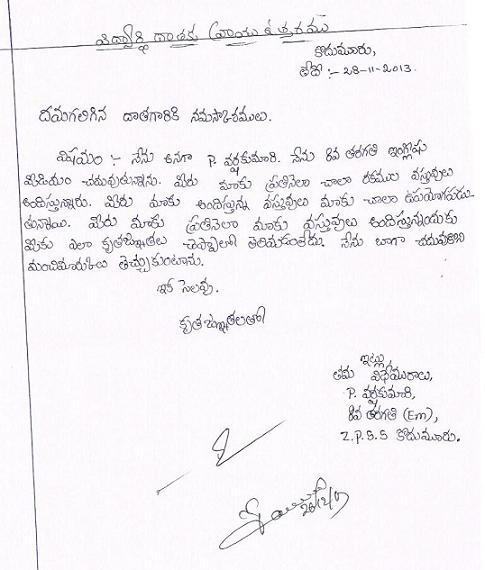 విద్యార్థి దాతకు వ్రాయు ఉత్తరము
కొదుమూరు,
తేది :- 28-11-2013.
దయగలిగిన దాతగారికి నమస్కారములు.
విషయం :- నేను అనగా P. వర్షకుమారి. నేను 8వ తరగతి ఇంగ్లీషు
మీడియం చదువుతున్నాను. మీరు మాకు ప్రతినెలా చాలా రకముల వస్తువులు
అందిస్తున్నారు. మీరు మాకు అందిస్తున్న వస్తువులు మాకు చాలా ఉపయోగపడు-
తున్నాయి. మీరు మాకు ప్రతినెలా మాకు వస్తువులు అందిస్తున్నందుకు
మీకు ఎలా కృతజ్ఞతలు చెప్పాలో తెలియడంలేదు. నేను బాగా చదువుకొని
మంచిమార్కులు తెచ్చుకుంటాను.
ఇక సెలవు.
కృతజ్ఞతలతో
ఇట్లు
తమ విధేయురాలు,
P. వర్షకుమారి,
8వ తరగతి (Em),
Z.P.S.S కొదుమూరు.